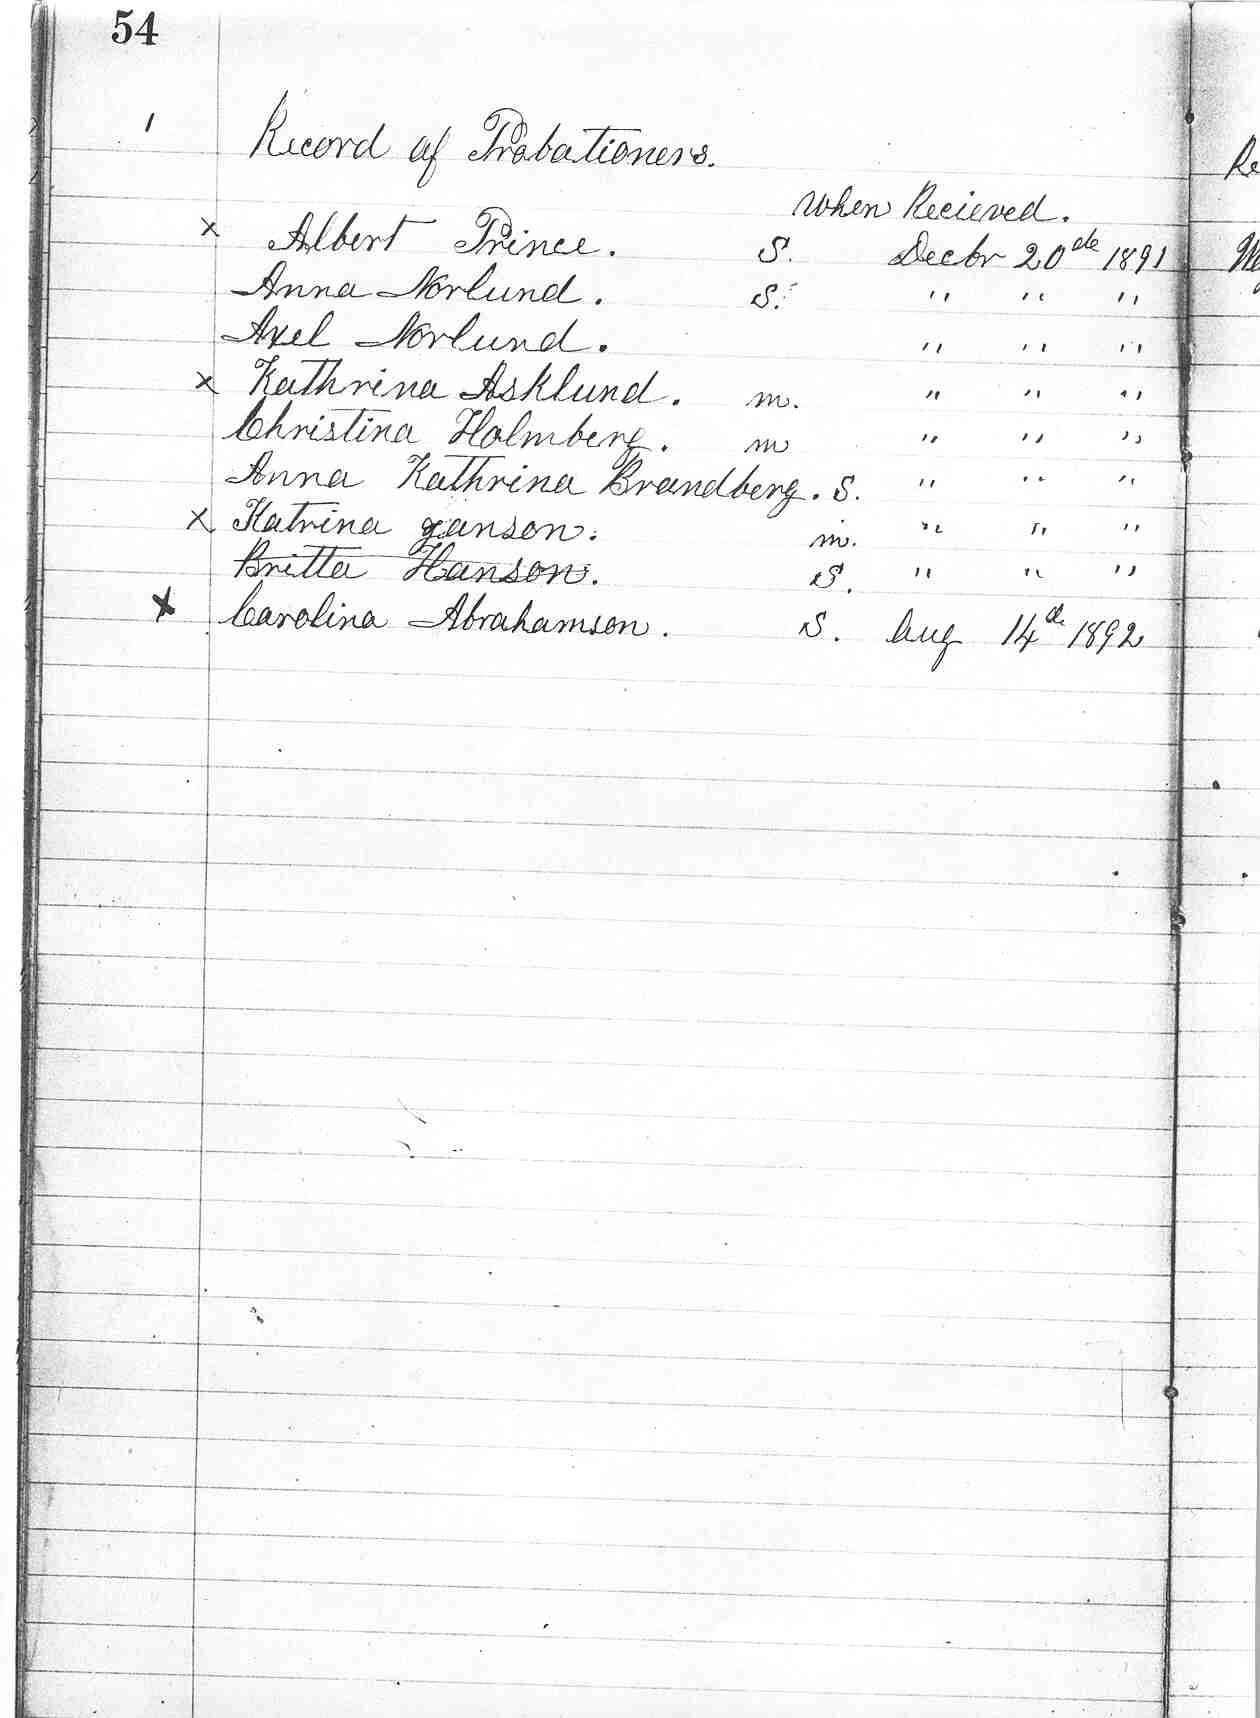 54
1 Record of Probationers.
When Recieved.
x Albert Prince. S. Decbr 20de 1891
Anna Norlund. S. " " "
Axel Norlund. " " "
x Kathrina Asklund. m. " " "
Christina Holmberg. m " " "
Anna Kathrina Brandberg. S. " " "
x Katrina Janson. m. " " "
Britta Hanson. S. " " "
x Carolina Abrahamson. S. Aug 14de 1892
Re